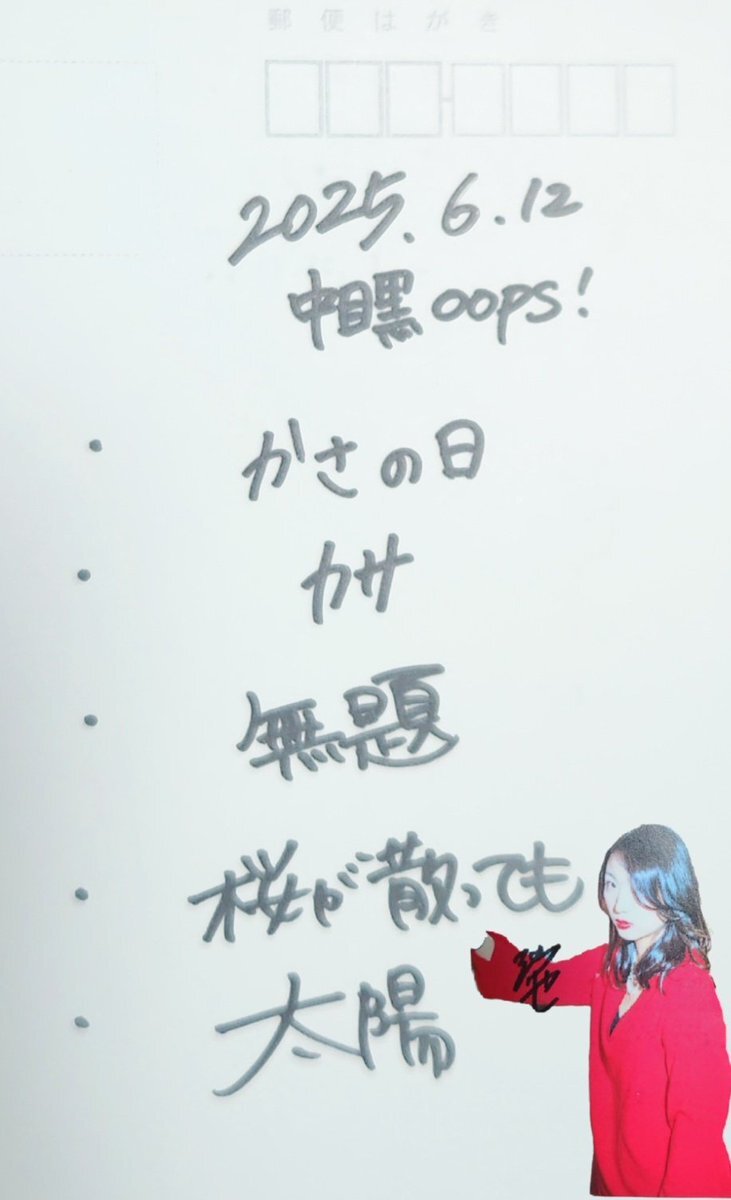 郵便はがき
2025.6.12
中目黒oops!
・かさの日
・カサ
・無題
・桜が散っても
・太陽